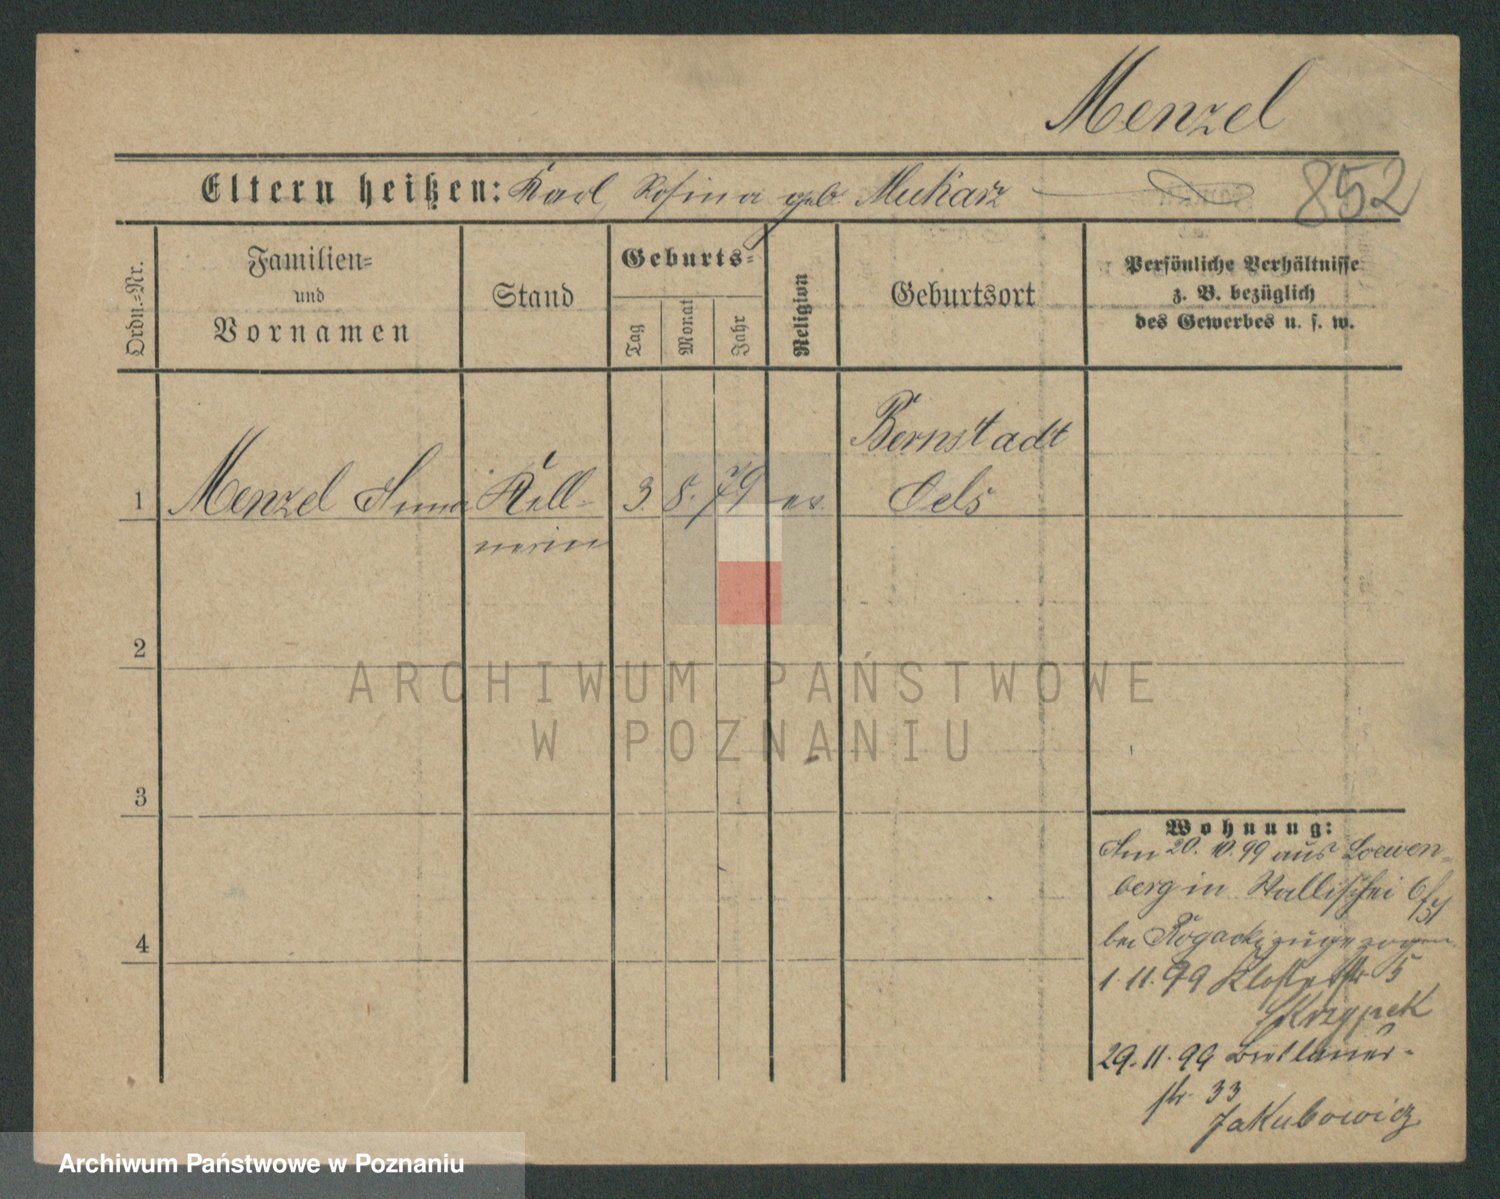 Menzel
Eltern heißen: Karl, Rosina geb. Mukarz
852
Ordn.-Nr.
Familien-
und
Vornamen
Stand
Geburts-
Tag
Monat
Jahr
Religion
Geburtsort
Persönliche Verhältnisse
z. B. bezüglich
des Gewerbes u. s. w.
Bernstadt
1 Menzel Anna Kell- 3. 8. 79 ev. Oels
nerin
2
3
4
Wohnung:
Am 20. 10. 99 aus Loewen-
berg in Wallischei
bei Rogacki zugezogen
1. 11. 99 Klosterstr 5
Skrzypek
29. 11. 99 Breslauer-
str 33
Jakubowicz
ARCHIWUM PAŃSTWOWE
W POZNANIU
Archiwum Państwowe w Poznaniu